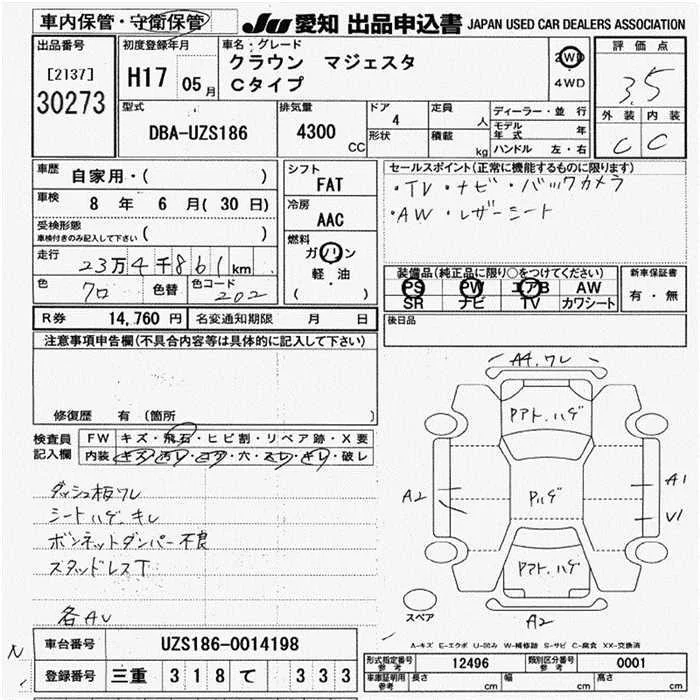 車内保管・守衛保管
JU 愛知 出品申込書 JAPAN USED CAR DEALERS ASSOCIATION
出品番号
[2137]
30273
初度登録年月
H17 05月
車名・グレード
クラウン マジェスタ
Cタイプ
2WD
4WD
評価点
3.5
外装 内装
C C
型式
DBA-UZS186
排気量
4300 CC
ドア
4
形状
定員
人
積載
kg
ディーラー・並行
モデル年式 年
ハンドル 左・右
車歴
自家用・( )
車検
8 年 6 月( 30 日)
受検形態
車検付きのみ記入して下さい ( )
走行
23万4千861km
色
クロ
色替
色コード
202
シフト
FAT
冷房
AAC
燃料
ガソリン
軽・油
( )
セールスポイント(正常に機能するものに限ります)
・TV・ナビ・バックカメラ
・AW・レザーシート
装備品(純正品に限り○をつけてください)
PS PW エアB AW
SR ナビ TV カワシート
新車保証書
有・無
後日品
R券 14,760 円 名変通知期限 月 日
注意事項申告欄(不具合内容等は具体的に記入して下さい)
修復歴 有 (箇所 )
検査員記入欄
FW キズ・飛石・ヒビ割・リペア跡・X要
内装 キズ・汚レ・コゲ・穴・スレ・キレ・破レ
ダッシュ板ワレ
シートハゲ、キレ
ボンネットダンパー不良
スタッドレスT
各AU
A4,ワレ
Pアト、ハゲ
Pハゲ
Pアト、ハゲ
A2
A1
U1
A2
スペア
A-キズ E-エクボ U-凹み W-補修跡 S-サビ C-腐食 XX-交換済
N
車台番号 UZS186-0014198
登録番号 三重 318 て 333
型式指定番号 参考 12496 類別区分番号 参考 0001
車庫証明用 参考 長さ cm 幅 cm 高さ cm